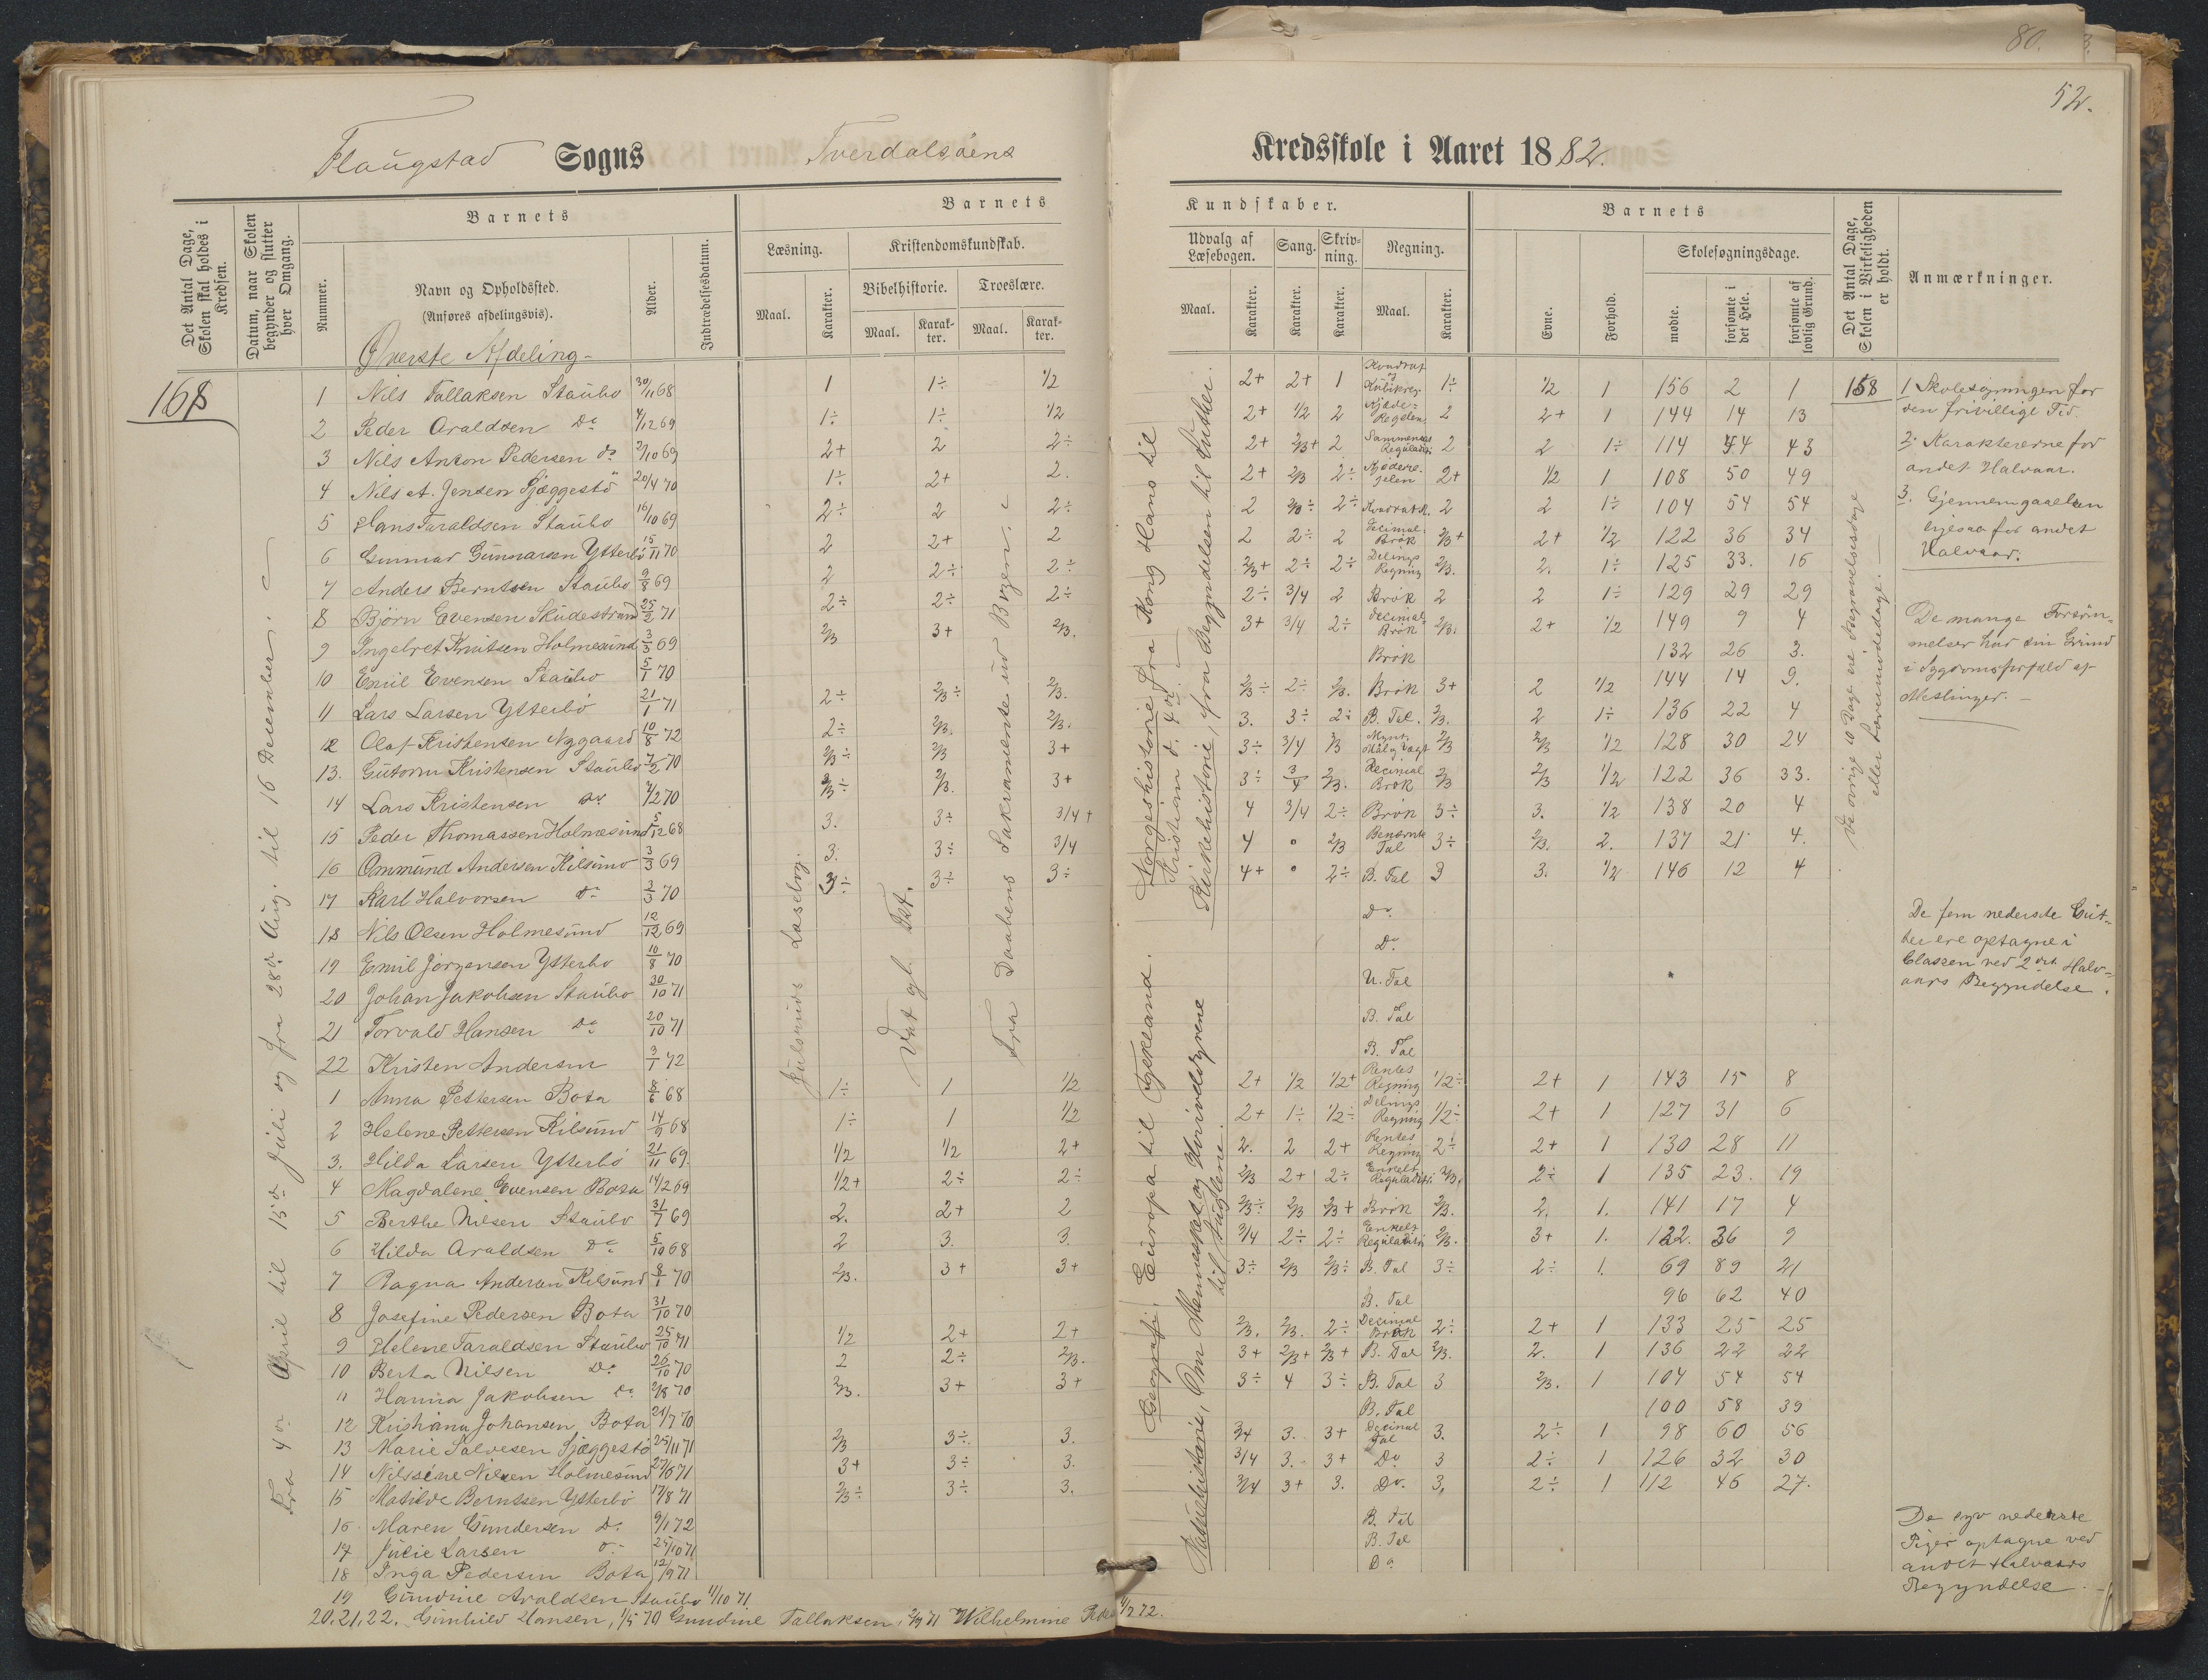 80.
52.
Flaugstad Sogns Tverdalsöens Kredsskole i Aaret 1882.
Det Antal Dage, Skolen skal holdes i Kredsen.
Datum, naar Skolen begynder og slutter hver Omgang.
Barnets
Nummer.
Navn og Opholdssted.
(Anføres afdelingsvis).
Alder.
Indtrædelsesdatum.
Barnets
Læsning.
Maal.
Karakter.
Kristendomskundskab.
Bibelhistorie.
Maal.
Karakter.
Troeslære.
Maal.
Karakter.
Kundskaber.
Udvalg af Læsebogen.
Maal.
Karakter.
Sang.
Karakter.
Skrivning.
Karakter.
Regning.
Maal.
Karakter.
Barnets
Evne.
Forhold.
Skolesøgningsdage.
mødte.
forsømte i det Hele.
forsømte af lovlig Grund.
Det Antal Dage, Skolen i Virkeligheden er holdt.
Anmærkninger.
Øverste Afdeling
168
158
1 Nils Tallaksen Staubo 30/11 68 1 1÷ 1/2 2+ 2+ 1 Kvadrat og Kubikreg. 1÷ 1/2 1 156 2 1
2 Peder Araldsen Do 4/12 69 1÷ 1÷ 1/2 2+ 1/2 2 Kjæde-Regelen 2 2+ 1 144 14 13
3 Nils Anton Pedersen do 2/10 69 2+ 2 2÷ 2+ 2/3+ 2 2 2 1÷ 114 44 43
4 Nils A. Jensen Sjæggestö 20/4 70 1÷ 2+ 2. 2+ 2/3 2÷ 2+ 1/2 1 108 50 49
5 Hans Taraldsen Staubo 16/10 69 2÷ 2 2÷ 2 2/3÷ 2÷ Kvadratr. 2 2 1÷ 104 54 54
6 Gunnar Gunnarsen Ytterbö 15/11 70 2 2+ 2 2 2÷ 2 Decimal Brök 2/3+ 2+ 1/2 122 36 34
7 Anders Berntsen Staubo 9/8 69 2 2÷ 2÷ 2/3+ 2÷ 2÷ Delings Regning 2/3. 2. 1÷ 125 33. 16
8 Björn Evensen Skudestrand 25/2 71 2÷ 2÷ 2÷ 2÷ 3/4 2 Brök 2 2 1÷ 129 29 29
9 Ingebret Knutsen Holmesund 3/3 69 2/3 3+ 2/3. 3+ 3/4 2÷ Decimal Brök 2/3. 2+ 1/2 149 9 4
10 Emil Evensen Staubo 5/1 70 Brök 132 26 3.
11 Lars Larsen Ytterbö 21/1 71 2÷ 2/3÷ 2/3. 2/3÷ 2÷ 2/3. Brök 3+ 2 1/2 144 14 9.
12 Olaf Kristensen Nygaard 10/8 72 2÷ 2/3. 2/3. 3. 3÷ 2÷ B. Tal. 2/3. 2 1÷ 136 22 4
13. Gutorm Kristensen Staubo 7/2 70 2/3÷ 2/3 3+ 3÷ 3/4 2/3 Mynt, Maal og Vægt 2/3 2/3 1/2 128 30 24
14 Lars Kristensen do 4/2 70 2/3÷ 2/3. 3+ 3÷ 3/4 2/3. Decimal Brök 2/3 2/3 1/2 122 36 33.
15 Peder Thomassen Holmesund 5/12 68 3. 3÷ 3/4+ 4 3/4 2÷ Brök 3÷ 3. 1/2 138 20 4
16 Ommund Andersen Kilsund 3/3 69 3. 3÷ 3/4 4 0 2/3 Benævnte Tal 3÷ 2/3. 2. 137 21 4.
17 Karl Halvorsen do 2/3 70 3÷ 3÷ 3÷ 4+ 0 2÷ B. Tal 3 3. 1/2 146 12 4
18 Nils Olsen Holmesund 12/12 69 Do
19 Emil Jörgensen Ytterbo 10/8 70 Do
20 Johan Jakobsen Staubo 30/10 71 U. Tal
21 Torvald Hansen Do 20/10 71 B. Tal
22 Kristen Andersen 3/1 72 B. Tal
1 Anna Pettersen Bota 6/6 68 1÷ 1 1/2 2+ 1/2 1/2+ Rentes Regning 1/2÷ 2+ 1 143 15 8
2 Helene Pettersen Kilsund 14/9 68 1÷ 1 1/2 2+ 1÷ 1/2÷ Delings Regning 1/2÷ 2+ 1 127 31 6
3. Hilda Larsen Ytterbö 21/11 69. 1/2 1/2 2+ 2. 2 2+ Rentes Regning 2÷ 2+ 1 130 28 11
4 Magdalene Evensen Bota 14/2 69 1/2+ 2÷ 2÷ 2/3 2+ 2÷ Enkelt Reguladetri 2/3. 2÷ 1 135 23. 19
5 Berthe Nilsen Staubo 31/7 69 2. 2+ 2 2/3÷ 2/3 2/3+ Brök 2/3. 2. 1. 141 17 4
6 Hilda Araldsen Do 5/10 68 2 3. 3. 3/4 2÷ 2÷ Enkelt Reguladetri 2/3. 3+ 1. 122. 36 9
7 Ragna Andersen Kilsund 8/1 70 2/3. 3+ 3+ 3÷ 2/3 2/3÷ B. Tal 3÷ 2÷ 1. 69 89 21
8 Josefine Pedersen Bota 31/10 70 B. Tal 96 62 40
9 Helene Taraldsen Staubo 25/10 71 1/2 2+ 2+ 2/3. 2/3. 2÷ Decimal Brök 2÷ 2+ 1 133 25 25
10 Berta Nilsen Do 26/10 70 2 2÷ 2/3. 3+ 2/3+ 2/3+ B. Tal 2/3. 2. 1 136 22 22
11 Hanna Jakobsen do 2/8 70 2/3. 3+ 3+ 3÷ 4 3÷ B. Tal 3 2/3. 1 104 54 54
12 Kristiana Johansen Bota 21/7 70 B. Tal 100 58 39
13 Marie Salvesen Sjæggestö 25/11 71 2/3 3÷ 3. 3/4 3. 3+ Decimal Tal 3. 2÷ 1 98 60 56
14 Nilssine Nilsen Holmesund 27/6 71 3+ 3÷ 3. 3/4 3. 3+ Do 3 2÷ 1 126 32 30
15 Matilde Berntsen Ytterbö 17/8 71 2/3÷ 3÷ 3. 3/4 3+ 3. Do. 3, 2÷ 1 112 46 27.
16. Maren Gundersen Do 9/1 72 B. Tal
17 Julie Larsen 25/10 71 B. Tal
18 Inga Pedersen Bota 12/9 71 Do
19 Gundine Araldsen Staubo 11/10 71.
20, 21, 22. Gunhild Hansen, 1/5 70 Gundine Tallaksen, 2/9 71 Wilhelmine 4/7 72.
Fra 4de April til 15de Juli og fra 28de Aug. til 16 December.
Julsruds Læsebog.
Vogt gl. Test.
Fra Daabens Sakramente ud Bogen.
Norgeshistorie fra Kong Hans til
Kristian d. 4de.
Kirkehistorie, fra Begyndelsen til Luther.
Geografi, Europa til Tyskland.
Naturhistorie, Om Mennesket og Hvirveldyrene
til Fuglene.
De övrige 10 Dage ere Begravelsesdage
eller
1 Skolesögningen for
den frivillige Tid.
2. Karaktererne for
andet Halvaar.
3. Gjennemgaaelsen
ligesaa for andet
Halvaar.
De mange Forsöm-
melser har sin Grund
i Sygdomsforfald af
Meslinger.
De fem nederste Gut-
ter ere optagne i
Classen ved 2det Halv-
aars Begyndelse.
De syv nederste
Piger optagne ved
andet Halvaars
Begyndelse.